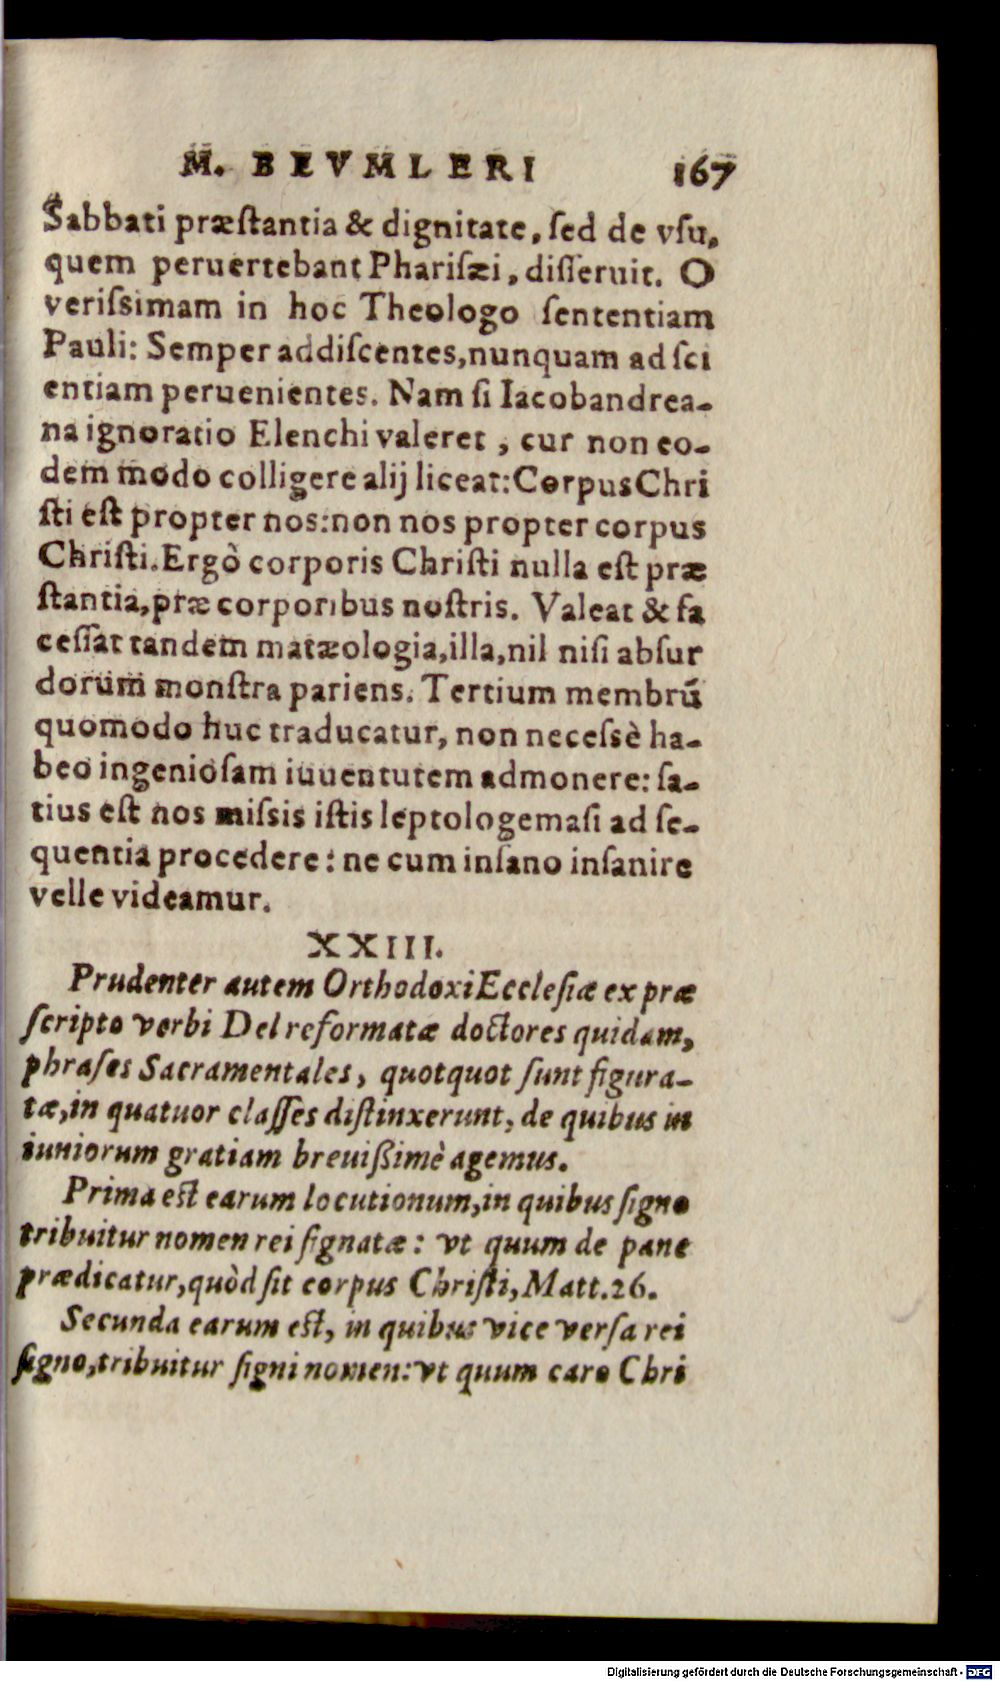 M. BEVMLERI 167
Sabbati præſtantia & dignitate, ſed de vſu,
quem peruertebant Phariſæi, diſſeruit. O
veriſsimam in hoc Theologo ſententiam
Pauli: Semper addiſcentes, nunquam ad ſci
entiam peruenientes. Nam ſi Iacobandrea-
na ignoratio Elenchi valeret, cur non eo-
dem modo colligere alij liceat: Corpus Chri
ſti eſt propter nos: non nos propter corpus
Chriſti. Ergò corporis Chriſti nulla eſt præ
ſtantia, præ corporibus noſtris. Valeat & fa
ceſſat tandem matæologia, illa, nil niſi abſur
dorum monſtra pariens. Tertium membrū
quomodo huc traducatur, non neceſsè ha-
beo ingenioſam iuuentutem admonere: ſa-
tius eſt nos miſsis iſtis leptologemaſi ad ſe-
quentia procedere: ne cum inſano inſanire
velle videamur.
XXIII.
Prudenter autem Orthodoxi Eccleſiæ ex præ
ſcripto verbi DeI reformatæ doctores quidam,
phraſes Sacramentales, quotquot ſunt figura-
tæ, in quatuor claſſes diſtinxerunt, de quibus in
iuniorum gratiam breuißimè agemus.
Prima eſt earum locutionum, in quibus ſigno
tribuitur nomen rei ſignatæ: vt quum de pane
prædicatur, quòd ſit corpus Chriſti, Matt. 26.
Secunda earum eſt, in quibus vice verſa rei
ſigno, tribuitur ſigni nomen: vt quum caro Chri
Digitalisierung gefördert durch die Deutsche Forschungsgemeinschaft - DFG